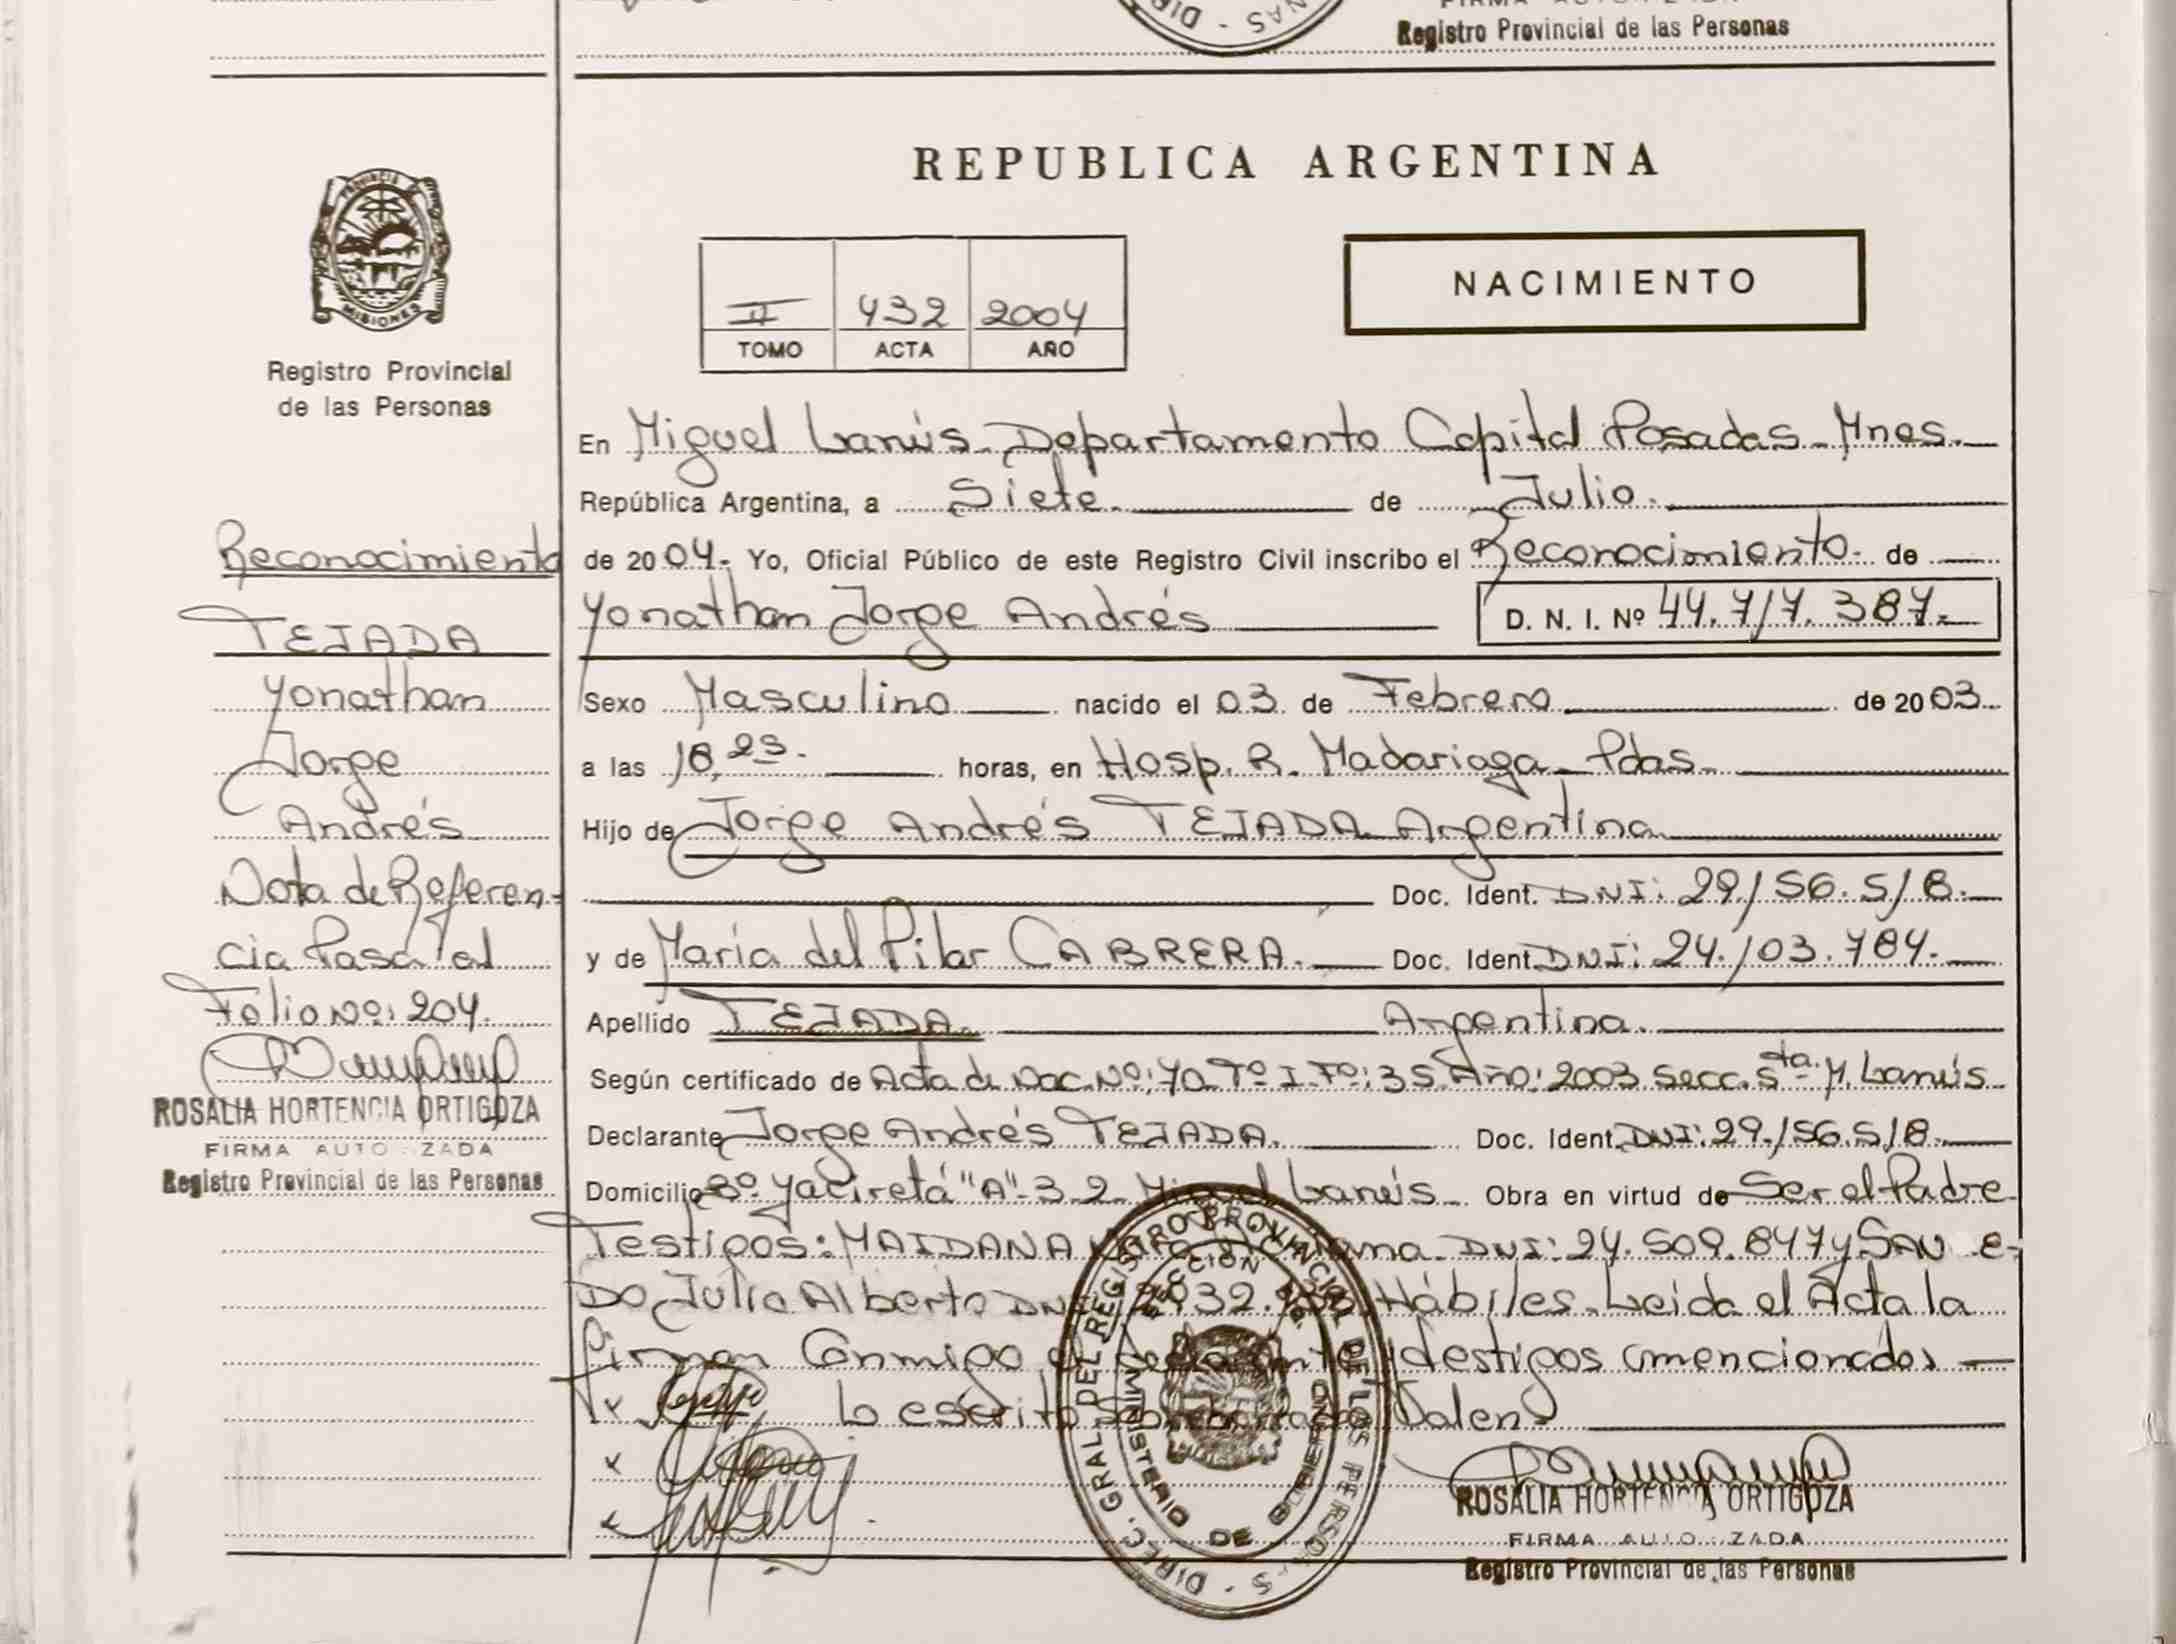 Registro Provincial de las Personas
REPUBLICA ARGENTINA
PROVINCIA DE
MISIONES
Registro Provincial
de las Personas
II 432 2004
TOMO ACTA AÑO
NACIMIENTO
Reconocimiento
TEJADA
Yonathan
Jorge
Andrés
Nota de Referen-
cia Pasa al
Folio Nº: 204.
ROSALIA HORTENCIA ORTIGOZA
FIRMA AUTO ZADA
Registro Provincial de las Personas
En Miguel Lanús-Departamento Capital Posadas-Mnes.
República Argentina, a Siete. de Julio.
de 2004. Yo, Oficial Público de este Registro Civil inscribo el Reconocimiento. de
Yonathan Jorge Andrés D. N. I. Nº 44.717.387.
Sexo Masculino nacido el 03 de Febrero de 2003
a las 18,23. horas, en Hosp. R. Madariaga-Pdas.
Hijo de Jorge Andrés TEJADA Argentina
Doc. Ident. DNI: 29.156.518.
y de María del Pilar CABRERA. Doc. Ident. DNI: 24.103.784.
Apellido TEJADA. Argentina.
Según certificado de Acta de Nac. Nº: 70 Tº I Fº: 35 Año: 2003 Secc. 5ta. M. Lanús
Declarante Jorge Andrés TEJADA. Doc. Ident. DNI: 29.156.518.
Domicilio Bº Yaciretá "A"-32 Miguel Lanús. Obra en virtud de Ser el Padre
Testigos: MAIDANA DNI: 24.509.847 y
Julio Alberto Hábiles. Leida el Acta la
firman Conmigo el declarante y testigos mencionados
Lo escrito sobreborrado Valen
DIREC. GRAL. DEL REGISTRO PROVINCIAL DE LAS PERSONAS
MINISTERIO DE GOBIERNO
ROSALIA HORTENCIA ORTIGOZA
FIRMA AUTO ZADA
Registro Provincial de las Personas